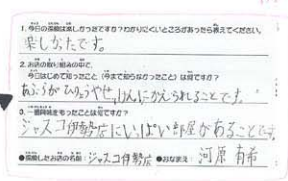 1. 今日の体験は楽しかったですか？わかりにくいところがあったら教えてください。
楽しかたです。
2. お店の取り組みの中で、
今日はじめて知ったこと（今まで知らなかったこと）は何ですか？
あぶらがひりょうやせっけんにかえられることです。
3. 一番興味をもったことは何ですか？
ジャスコ伊勢店にいっぱい部屋があることです。
●体験したお店の名前：ジャスコ伊勢店 ●おなまえ：河原 有希